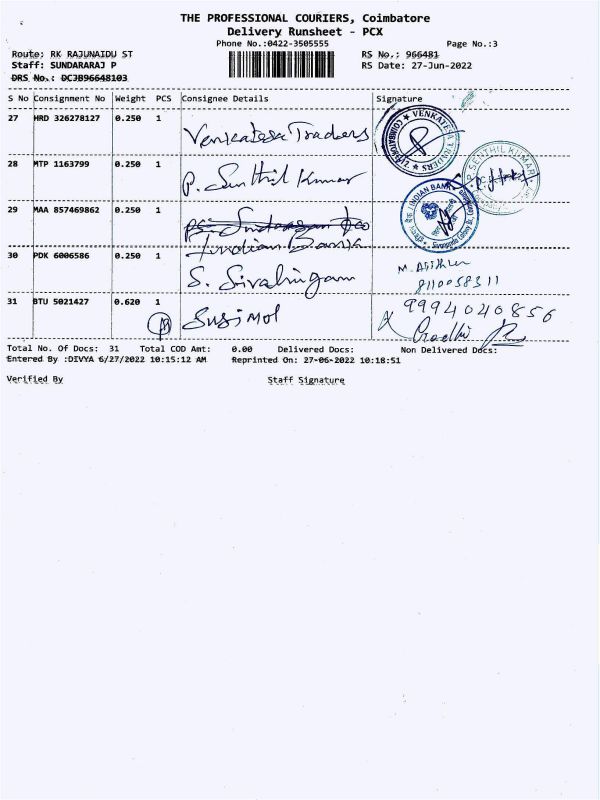 THE PROFESSIONAL COURIERS, Coimbatore
Delivery Runsheet - PCX
Phone No.:0422-3505555
Page No.:3
Route: RK RAJUNAIDU ST
RS No.: 966481
Staff: SUNDARARAJ P
RS Date: 27-Jun-2022
DRS No.: DCJB96648103
S No Consignment No Weight PCS Consignee Details Signature
27 HRD 326278127 0.250 1 Venkatesa Traders
VENKATESA TRADERS
COIMBATORE
28 MTP 1163799 0.250 1 P. Senthil Kumar
P. SENTHIL KUMAR
29 MAA 857469862 0.250 1
Indian Bank
INDIAN BANK
30 PDK 6006586 0.250 1 S. Sivalingam
8110058311
31 BTU 5021427 0.620 1 Susi Mol
9994040856
Total No. Of Docs: 31 Total COD Amt: 0.00 Delivered Docs: Non Delivered Docs:
Entered By :DIVYA 6/27/2022 10:15:12 AM Reprinted On: 27-06-2022 10:18:51
Verified By Staff Signature